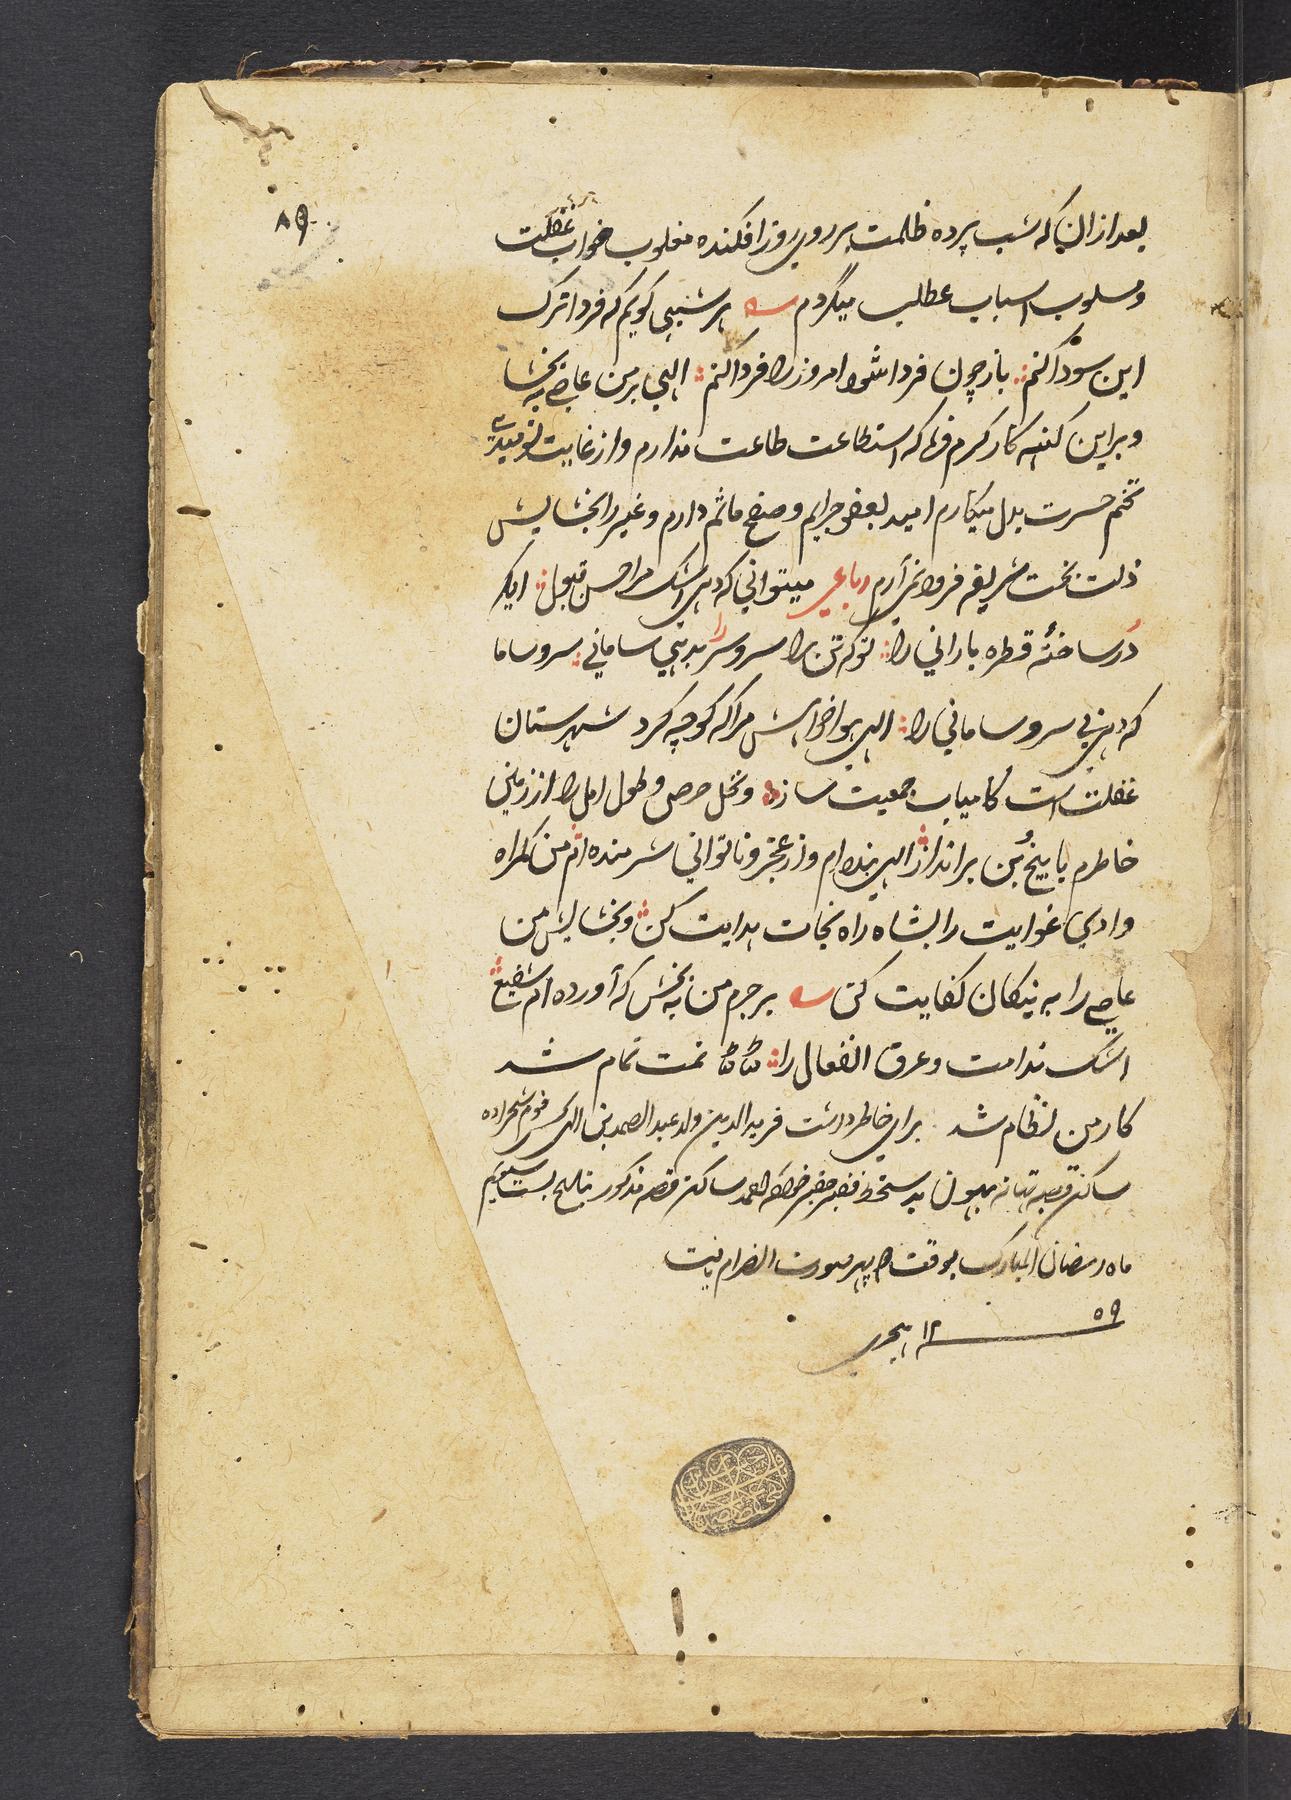 ۸۹
بعد ازان که شب پرده ظلمت بر روی روز افکنده مغلوب خواب غفلت
و مسلوب اسباب عطلب میگردم ہر شبی کویم که فردا ترک
این سودا کنم باز چون فردا شود امروز را فردا کنم الهی بر من عاصی به بخشا
و براین کنه کار کرم فرما که استطاعت طاعت ندارم و از غایت نومیدی
تخم حسرت بدل میکارم امید بعفو جرایم و صفح ماثم دارم و غیر را بخشایش
ذلت بخت سر بقه فرو نمی آرم رباعی میتوانی که دهی اشک مرا حسن قبول ایکه
دُر ساختهٔ قطره بارانی را تو که تن را سر و سر را بدهی سامانی سر و ساما
که دهی بی سر و سامانی را الهی هوا خواهش مرا که کوچه کرد شهرستان
غفلت است کامیاب جمعیت ساز و نخل حرص و طول امل را از زمین
خاطرم با بیخ و بُن براندار الهی بنده ام و از عجز و ناتوانی شرمنده ام من گمراه
وادی غوایت را بشاه راه نجات هدایت کن و بخشایش من
عاصی را به نیکان کفایت کن بر جرم من به بخش که آورده ام شفیع
اشک ندامت و عرق انفعال را تمت تمام شد
کار من نظام شد برای خاطر داشت فرید الدین ولد عبد الصمد بن
ساکن قصبه تهانه بهون بدستخط فقیر حقیر ساکن قصبه مذکور بتاریخ بست سیوم
ماه رمضان المبارک بوقت پهر صورت انصرام یافت
۱۲۵۹ ہجری